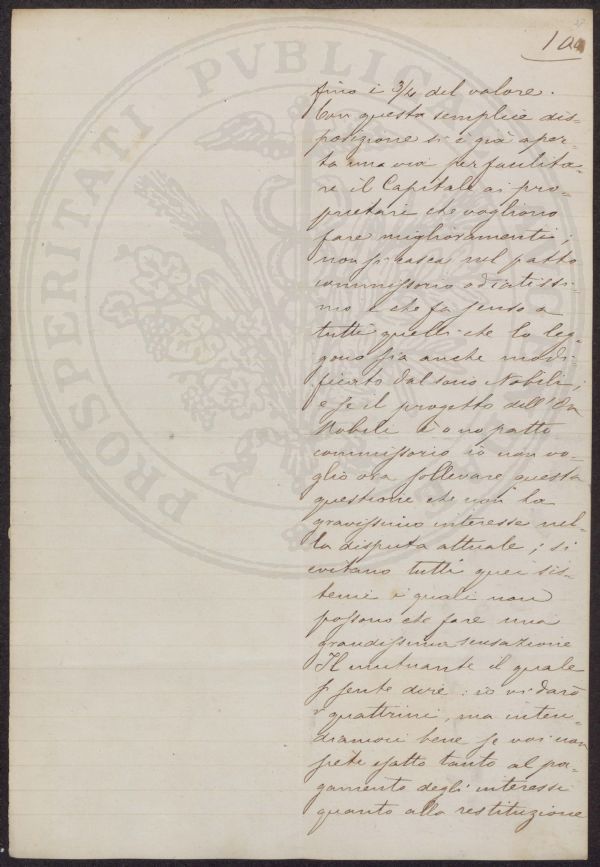 10
fino i 3/4 del valore.
Con questa semplice dis-
posizione si è già aper-
ta una via per facilita-
re il Capitale ai pro-
prietari che vogliono
fare miglioramenti;
non si casca nel patto
commissorio odiatissi-
mo e che fa senso a
tutti quelli che lo leg-
gono sia anche modi-
ficato dal socio Nobili;
e se il progetto dell'On
Nobili è o no patto
commissorio io non vo-
glio ora sollevare questa
questione che non ha
gravissimo interesse nel-
la disputa attuale; si
evitano tutti quei sis-
temi i quali non
possono che fare una
grandissima sensazione
Il mutuante il quale
si sente dire: io vi darò
i quattrini, ma inten-
diamoci bene se voi non
siete esatto tanto al pa-
gamento degli interessi
quanto alla restituzione
PROSPERITATI PVBLICAE